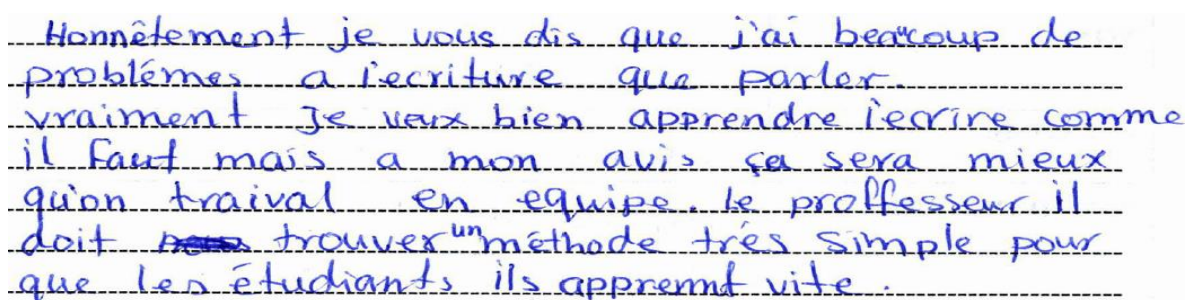 Honnêtement je vous dis que j'ai beaucoup de
problémes a l'ecriture que parler.
vraiment Je veux bien apprendre l'ecrire comme
il faut mais a mon avis ça sera mieux
qu'on traival en equipe. le proffesseur il
doit trouver un méthode trés simple pour
que les étudiants ils apprennt vite.